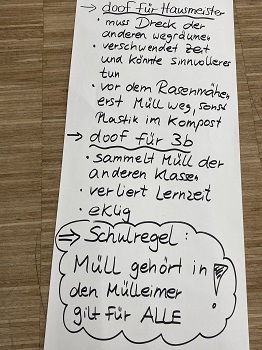 → doof für Hausmeister
• muss Dreck der
anderen wegräumen
• verschwendet Zeit
und könnte sinnvolleres
tun
• vor dem Rasenmähen
erst Müll weg, sonst
Plastik im Kompost
→ doof für 3b
• sammelt Müll der
anderen Klassen
• verliert Lernzeit
• eklig
⇒ Schulregel:
Müll gehört in
den Mülleimer
gilt für ALLE !